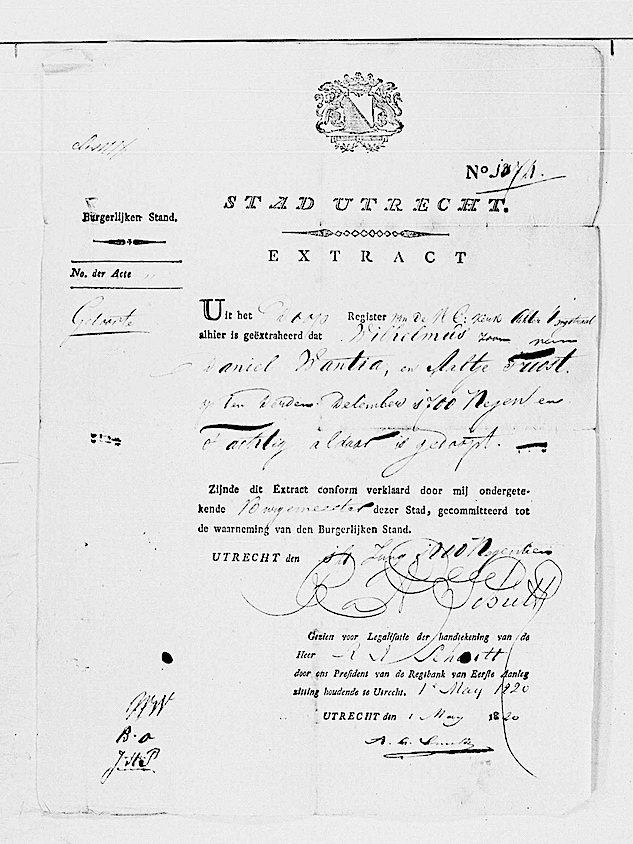 N
No.
STAD UTRECHT.
Burgerlijken Stand.
EXTRACT
No. der Acte
Geboorte
Uit het Doop Register van de R C: Kerk
alhier is geëxtraheerd dat Wilhelmus zoon van
Daniel Wantia, en Aaltje Froost.
op den derden December 1700 Negen en
Tachtig aldaar is gedoopt.
Zijnde dit Extract conform verklaard door mij ondergete-
kende Burgemeester dezer Stad, gecommitteerd tot
de waarneming van den Burgerlijken Stand.
UTRECHT den Juny 1800 Negentien
Gezien voor Legalisatie der handtekening van de
Heer
door ons President van de Regtbank van Eerste Aanleg
zitting houdende te Utrecht. 1 May 1820
UTRECHT den 1 May 1820